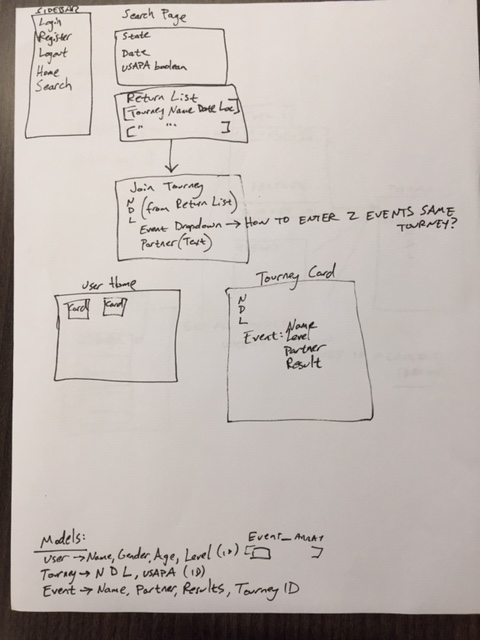 SIDEBAR
Login
Register
Logout
Home
Search
Search Page
State
Date
USAPA boolean
Return List
[Tourney Name Date Loc]
[" "" ]
Join Tourney
N
D (from Return List)
L
Event Dropdown → HOW TO ENTER 2 EVENTS SAME
TOURNEY?
Partner (Text)
User Home
Card Card
Tourney Card
N
D
L
Event: Name
Level
Partner
Result
Models:
User → Name, Gender, Age, Level (ID)
Event_ARRAY
[ ]
Tourney → N D L, USAPA (ID)
Event → Name, Partner, Results, Tourney ID